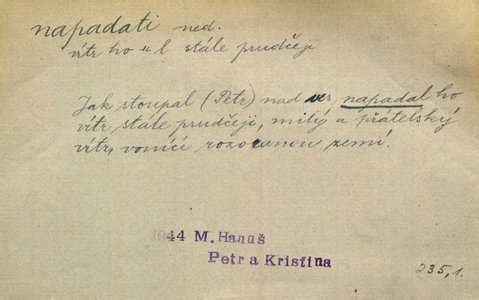 napadati ned.
vítr ho ~l stále prudčeji
Jak stoupal (Petr) nad ves, napadal ho
vítr stále prudčeji, milý a přátelský
vítr, vonící rozoranou zemí.
1944 M. Hanuš
Petr a Kristina
235,1.